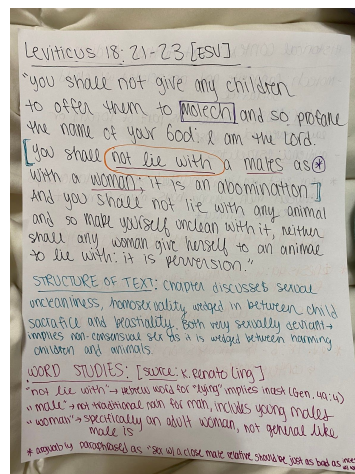 Leviticus 18:21-23 [ESV]
"you shall not give any children
to offer them to Molech and so profane
the name of your God: I am the Lord.
[You shall not lie with a males as *
with a woman; it is an abomination.]
And you shall not lie with any animal
and so make yourself unclean with it, neither
shall any woman give herself to an animal
to lie with: it is perversion."
STRUCTURE OF TEXT: chapter discusses sexual
uncleanliness, homosexuality wedged in between child
sacrafice and beastiality. Both very sexually deviant →
implies non-consensual sex as it is wedged between harming
children and animals.
WORD STUDIES: [source: K. Renato Ling]
"not lie with" → hebrew word for "lying" implies incest (Gen. 49:4)
"male" → not traditional noun for man, includes young males
"woman" → specifically an adult woman, not general like
male is
* arguably paraphrased as "sex w/ a close male relative should be just as bad as